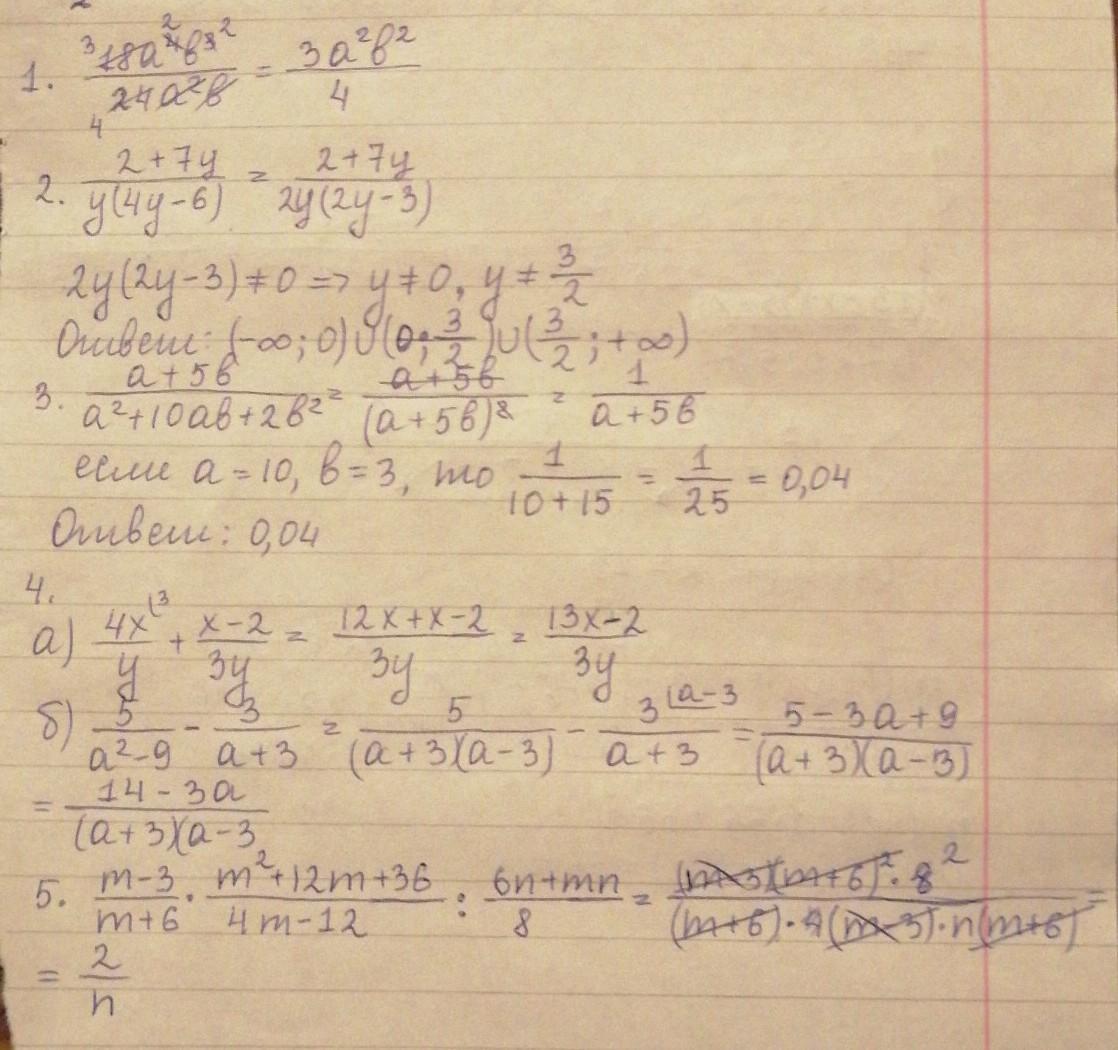 1. 18a⁴b³/24a²b = 3a²b²/4
2. 2+7y/y(4y-6) = 2+7y/2y(2y-3)
2y(2y-3)≠0 => y≠0, y≠3/2
Ответ: (-∞; 0)∪(0; 3/2)∪(3/2; +∞)
3. a+5b/a²+10ab+2b² = a+5b/(a+5b)² = 1/a+5b
если a=10, b=3, то 1/10+15 = 1/25 = 0,04
Ответ: 0,04
4.
а) 4x⁽³/y + x-2/3y = 12x+x-2/3y = 13x-2/3y
б) 5/a²-9 - 3/a+3 = 5/(a+3)(a-3) - 3⁽ᵃ⁻³/a+3 = 5-3a+9/(a+3)(a-3)
= 14-3a/(a+3)(a-3
5. m-3/m+6 · m²+12m+36/4m-12 : 6n+mn/8 = (m-3)(m+6)²·8²/(m+6)·4(m-3)·n(m+6) =
= 2/n